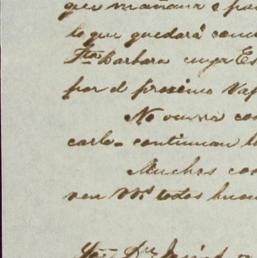 que mañana o pa
lo que quedará conc
Sta Barbara cuya Es
por el proximo Vap
No ocurre cos
carlo. continuan l
Muchas cos
ven Vds todos buen